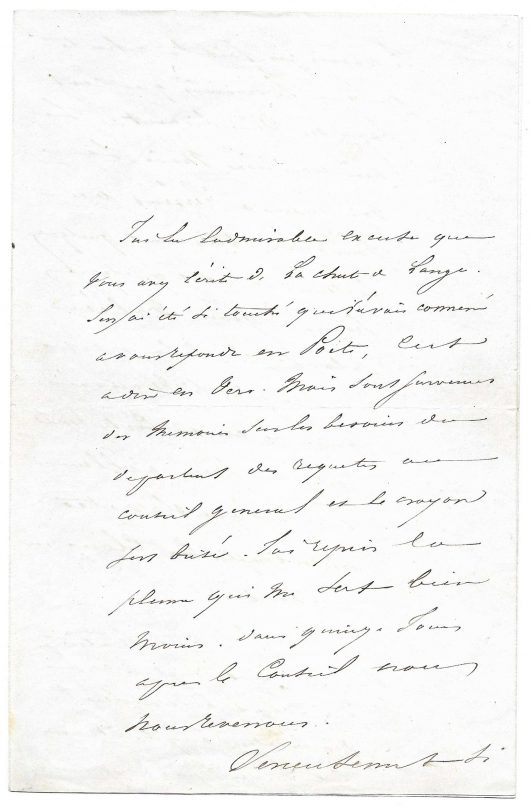 J'ai lu l'admirable excuse que
vous avez écrite de La chute de L'ange.
J'en ai été si touché que j'avais commencé
a vous repondre en Poète, C'est
a dire en Vers. Mais sont survenus
des Memoires sur les besoins du
departement des requetes au
conseil general et le crayon
s'est brisé. J'ai repris la
plume qui me sert bien
moins. dans quinze Jours
apres le Conseil nous
nous reverrons.